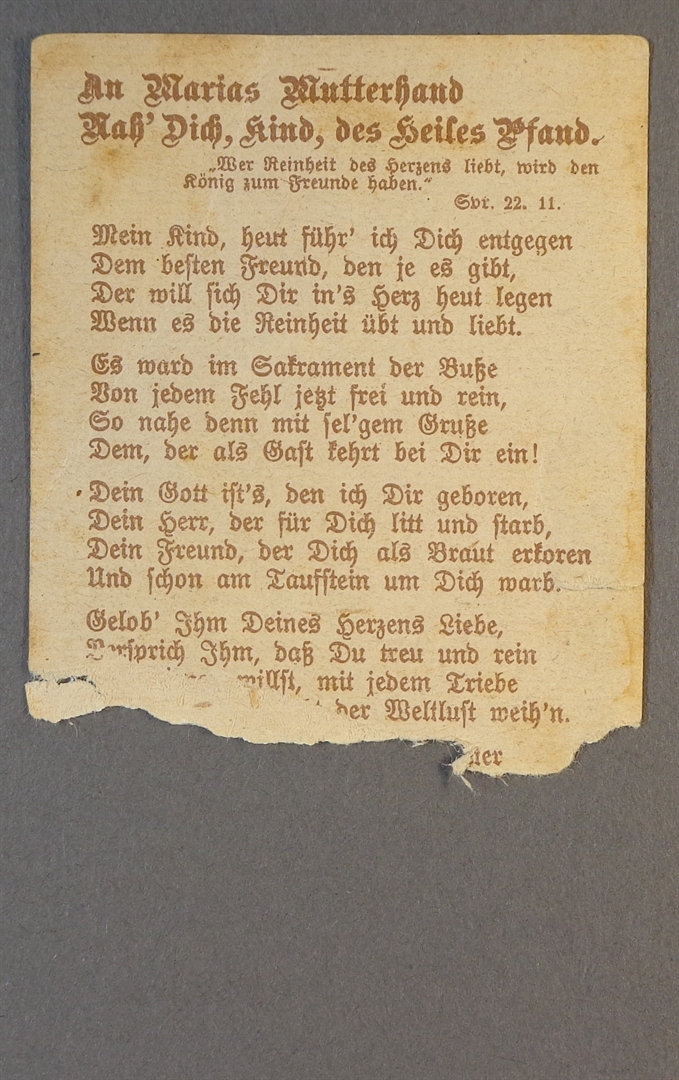 An Marias Mutterhand
Nah' Dich, Kind, des Heiles Pfand.
„Wer Reinheit des Herzens liebt, wird den
König zum Freunde haben.“
Spr. 22. 11.
Mein Kind, heut führ' ich Dich entgegen
Dem besten Freund, den je es gibt,
Der will sich Dir in's Herz heut legen
Wenn es die Reinheit übt und liebt.
Es ward im Sakrament der Buße
Von jedem Fehl jetzt frei und rein,
So nahe denn mit sel'gem Gruße
Dem, der als Gast kehrt bei Dir ein!
Dein Gott ist's, den ich Dir geboren,
Dein Herr, der für Dich litt und starb,
Dein Freund, der Dich als Braut erkoren
Und schon am Taufstein um Dich warb.
Gelob' Ihm Deines Herzens Liebe,
Versprich Ihm, daß Du treu und rein
willst, mit jedem Triebe
der Weltlust weih'n.